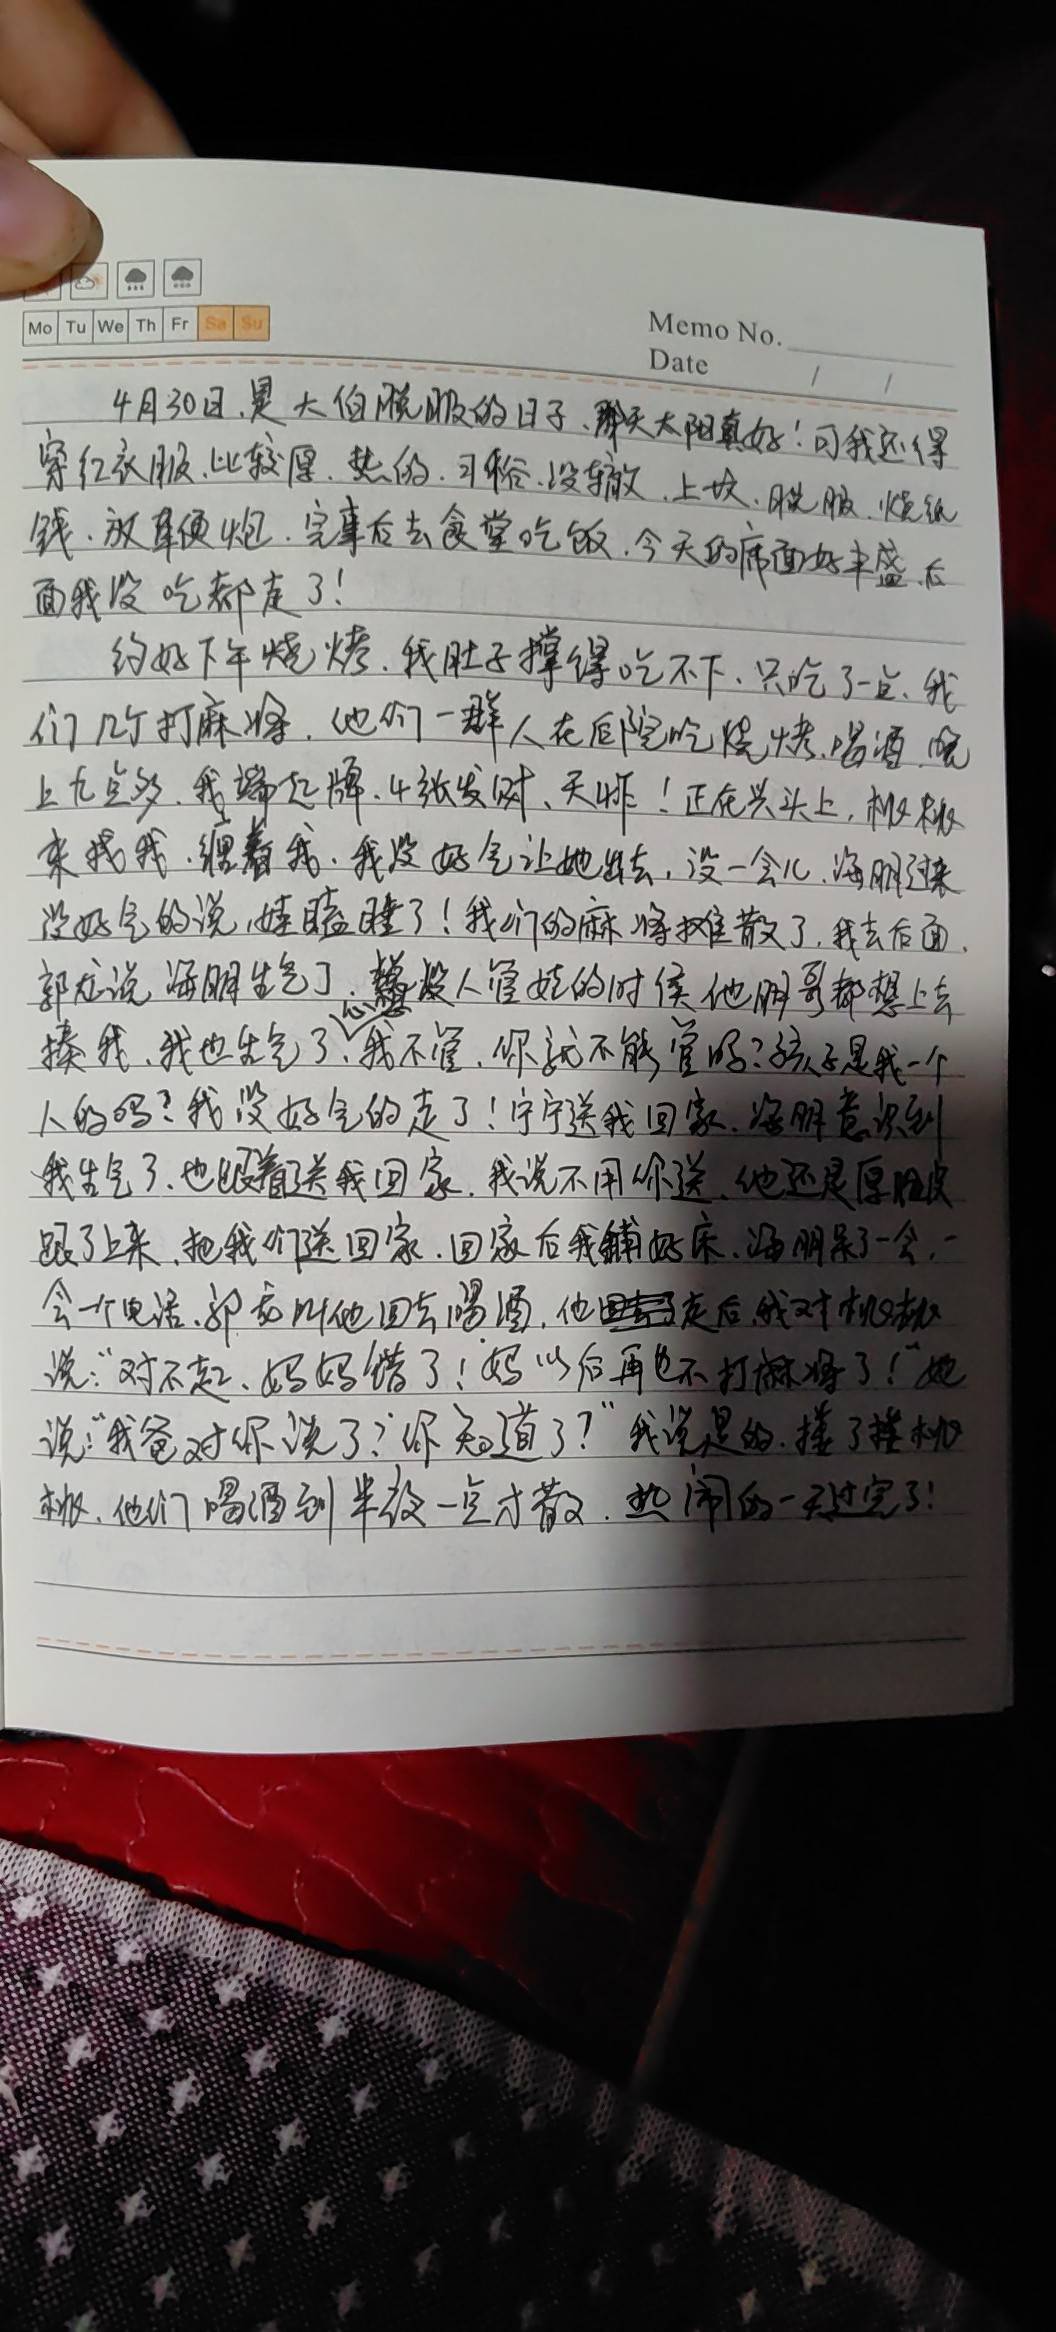 Mo Tu We Th Fr Sa Su
Memo No.
Date / /
4月30日、是大伯脱服的日子、那天太阳真好！可我还得
穿红衣服、比较厚、热的、习俗、没辙、上坟、脱服、烧纸
钱、放鞭炮、完事后去食堂吃饭、今天的席面好丰盛、后
面我没吃都走了！
约好下午烧烤、我肚子撑得吃不下、只吃了一点、我
们几个打麻将、他们一群人在后院吃烧烤、喝酒、晚
上九点多、我端起牌、4张发财、天牌！正在兴头上，桃桃
来找我、缠着我、我没好气让她出去，没一会儿、海朋过来
没好气的说，娃瞌睡了！我们的麻将摊散了、我去后面、
郭龙说海朋生气了、没人管娃的时候他朋哥都想上去
揍我、我也生气了、心想我不管、你就不能管吗？孩子是我一个
人的吗？我没好气的走了！宁宁送我回家、海朋意识到
我生气了、也跟着送我回家、我说不用你送、他还是厚脸皮
跟了上来、把我们送回家、回家后我铺好床、海朋呆了一会、一
会一个电话、郭龙叫他回去喝酒，他走后、我对桃桃
说：“对不起、妈妈错了！妈以后再也不打麻将了！”她
说：“我爸对你说了？你知道了？”我说是的、搂了搂桃
桃、他们喝酒到半夜一点才散、热闹的一天过完了！